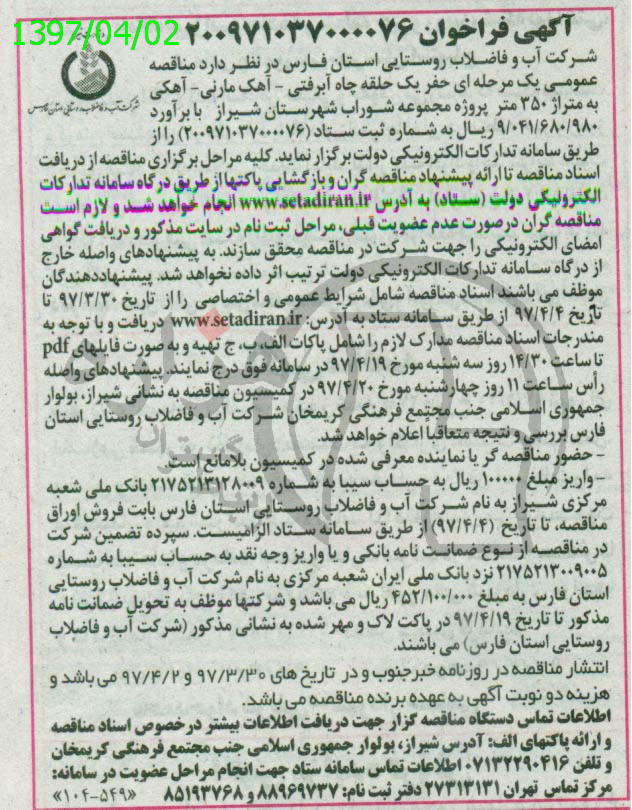 1397/04/02
آگهی فراخوان ۲۰۰۹۷۱۰۳۷۰۰۰۰۷۶
شرکت آب و فاضلاب روستایی استان فارس در نظر دارد مناقصه
عمومی یک مرحله ای حفر یک حلقه چاه آبرفتی - آهک مارنی- آهکی
به متراژ ۳۵۰ متر پروژه مجموعه شوراب شهرستان شیراز با برآورد
۹/۰۴۱/۶۸۰/۹۸۰ ریال به شماره ثبت ستاد (۲۰۰۹۷۱۰۳۷۰۰۰۰۷۶) را از
طریق سامانه تدارکات الکترونیکی دولت برگزار نماید. کلیه مراحل برگزاری مناقصه از دریافت
اسناد مناقصه تا ارائه پیشنهاد مناقصه گران و بازگشایی پاکتها از طریق درگاه سامانه تدارکات
الکترونیکی دولت (ستاد) به آدرس www.setadiran.ir انجام خواهد شد و لازم است
مناقصه گران در صورت عدم عضویت قبلی، مراحل ثبت نام در سایت مذکور و دریافت گواهی
امضای الکترونیکی را جهت شرکت در مناقصه محقق سازند. به پیشنهادهای واصله خارج
از درگاه سامانه تدارکات الکترونیکی دولت ترتیب اثر داده نخواهد شد. پیشنهاددهندگان
موظف می باشند اسناد مناقصه شامل شرایط عمومی و اختصاصی را از تاریخ ۹۷/۳/۳۰ تا
تاریخ ۹۷/۴/۴ از طریق سامانه ستاد به آدرس: www.setadiran.ir دریافت و با توجه به
مندرجات اسناد مناقصه مدارک لازم را شامل پاکات الف، ب، ج تهیه و به صورت فایلهای pdf
تا ساعت ۱۴/۳۰ روز سه شنبه مورخ ۹۷/۴/۱۹ در سامانه فوق درج نمایند. پیشنهادهای واصله
رأس ساعت ۱۱ روز چهارشنبه مورخ ۹۷/۴/۲۰ در کمیسیون مناقصه به نشانی شیراز، بولوار
جمهوری اسلامی جنب مجتمع فرهنگی کریمخان شرکت آب و فاضلاب روستایی استان
فارس بررسی و نتیجه متعاقبا اعلام خواهد شد.
- حضور مناقصه گر یا نماینده معرفی شده در کمیسیون بلامانع است.
- واریز مبلغ ۱۰۰۰۰۰ ریال به حساب سیبا به شماره ۲۱۷۵۲۱۳۱۲۸۰۰۹ بانک ملی شعبه
مرکزی شیراز به نام شرکت آب و فاضلاب روستایی استان فارس بابت فروش اوراق
مناقصه، تا تاریخ (۹۷/۴/۴) از طریق سامانه ستاد الزامیست. سپرده تضمین شرکت
در مناقصه از نوع ضمانت نامه بانکی و یا واریز وجه نقد به حساب سیبا به شماره
۲۱۷۵۲۱۳۰۰۹۰۰۵ نزد بانک ملی ایران شعبه مرکزی به نام شرکت آب و فاضلاب روستایی
استان فارس به مبلغ ۴۵۲/۱۰۰/۰۰۰ ریال می باشد و شرکتها موظف به تحویل ضمانت نامه
مذکور تا تاریخ ۹۷/۴/۱۹ در پاکت لاک و مهر شده به نشانی مذکور (شرکت آب و فاضلاب
روستایی استان فارس) می باشند.
انتشار مناقصه در روزنامه خبرجنوب و در تاریخ های ۹۷/۳/۳۰ و ۹۷/۴/۲ می باشد و
هزینه دو نوبت آگهی به عهده برنده مناقصه می باشد.
اطلاعات تماس دستگاه مناقصه گزار جهت دریافت اطلاعات بیشتر در خصوص اسناد مناقصه
و ارائه پاکتهای الف: آدرس شیراز، بولوار جمهوری اسلامی جنب مجتمع فرهنگی کریمخان
و تلفن ۰۷۱۳۲۲۹۰۴۱۶ اطلاعات تماس سامانه ستاد جهت انجام مراحل عضویت در سامانه:
مرکز تماس تهران ۲۷۳۱۳۱۳۱ دفتر ثبت نام: ۸۸۹۶۹۷۳۷ و ۸۵۱۹۳۷۶۸ «۱۰۴-۵۴۹»
شرکت آب و فاضلاب روستایی استان فارس